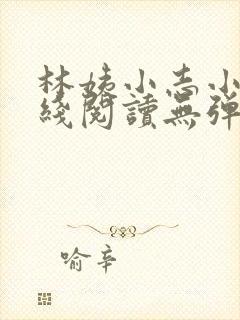 林姨小志小
綫閱讀無彈
喻辛